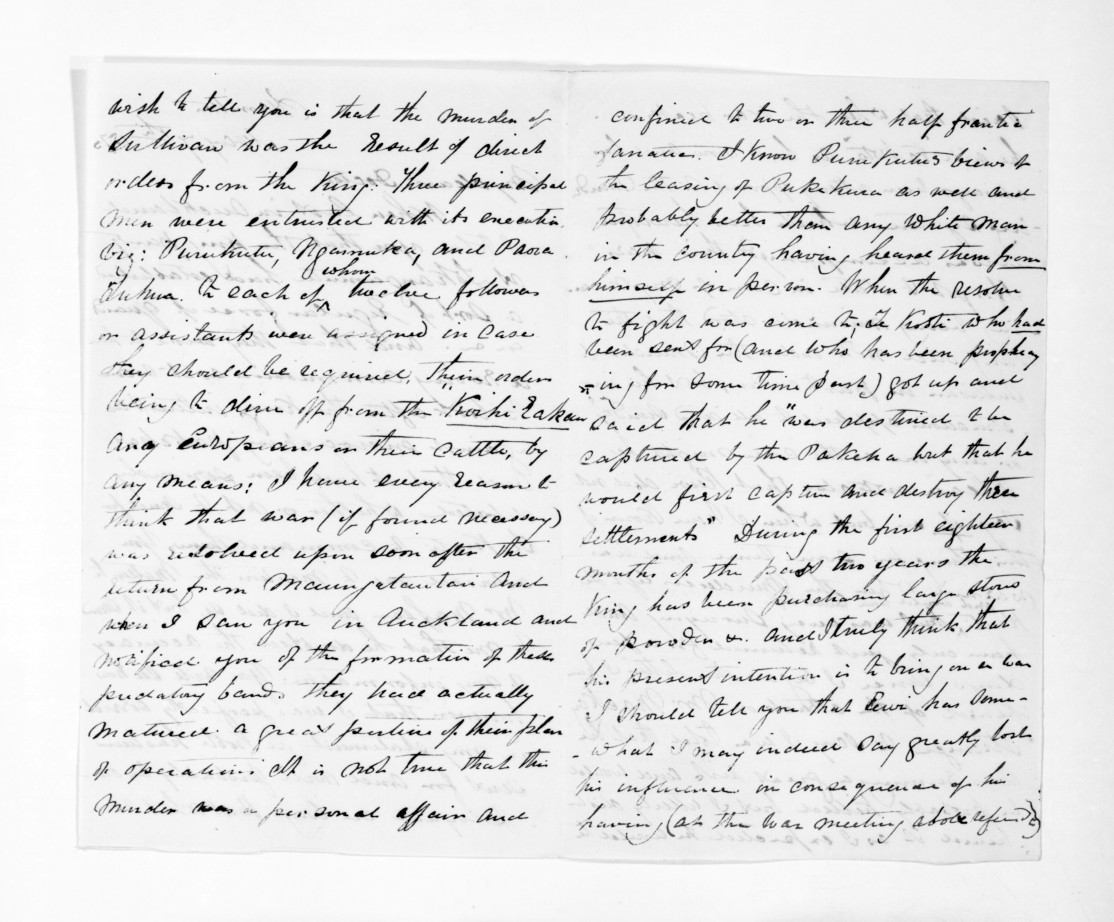 wish to tell you is that the murder of
Sullivan was the result of direct
orders from the King. Three principal
men were entrusted with its execution
viz: Purukutu, Ngamuka, and Paora
Tuhua. To each of whom twelve followers
or assistants were assigned in case
they should be required. Their orders
being to drive off from the
any Europeans or their cattle, by
any means: I have every reason to
think that war (if found necessary)
was resolved upon soon after the
return from Maungatautari and
when I saw you in Auckland and
notified you of the formation of these
predatory bands they had actually
matured a great portion of their plan
of operations It is not true that this
murder was a personal affair and
confined to two or three half frantic
fanatics. I know Purukutu's views of
the leasing of Pukekura as well and
probably better than any White man
in the country having heard them from
himself in person. When the resolve
to fight was come to, Te who had
been sent for (and who has been prophecy
-ing for some time past) got up and
said that he "was destined to be
captured by the Pakeha but that he
would first capture and destroy three
settlements" During the first eighteen
months of the past two years the
King has been purchasing large stores
of powder &. and I truly think that
his present intention is to bring on a war
I should tell you that Rewi has some-
-what I may indeed say greatly lost
his influence in consequence of his
having (at the war meeting above referred to)